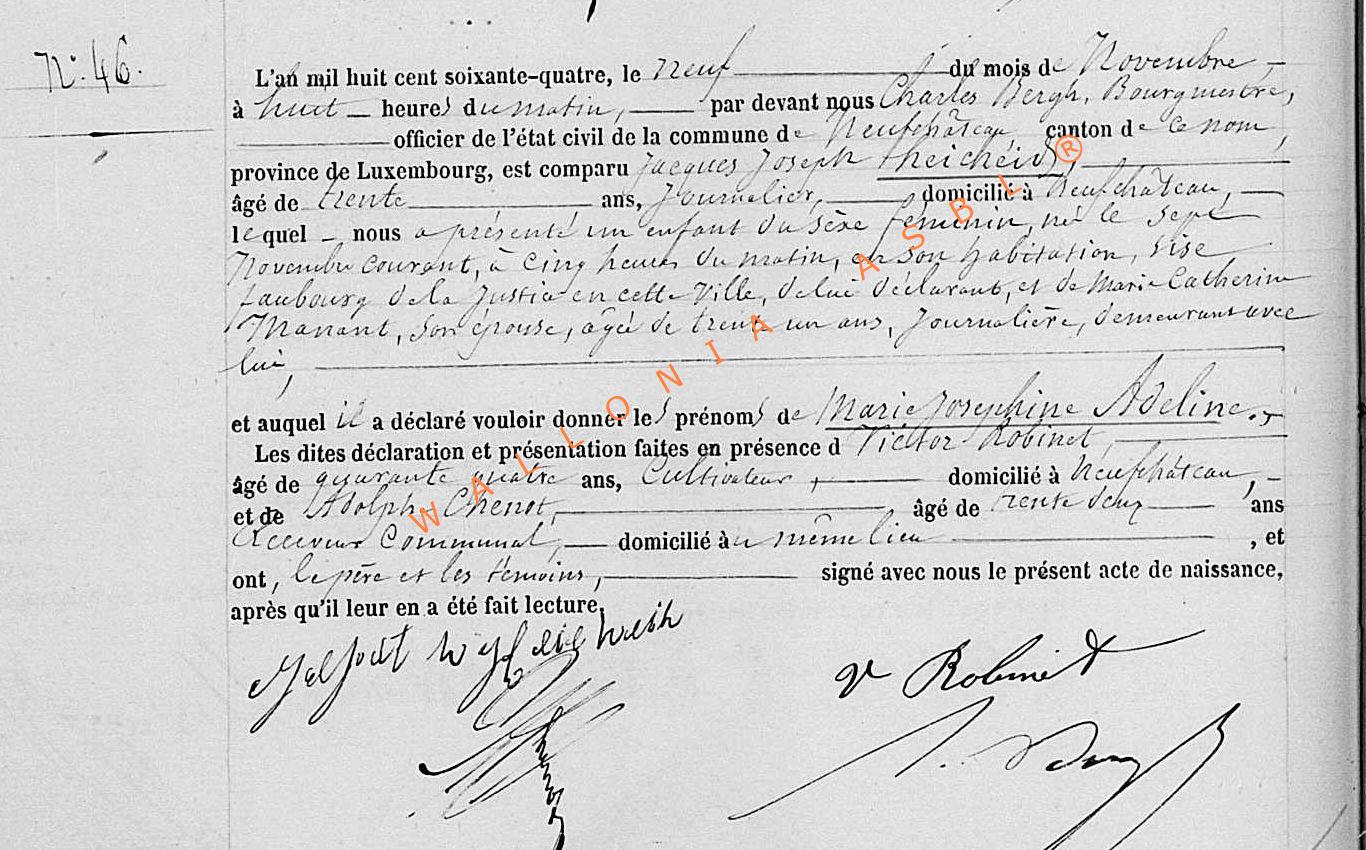 N° 46.
L'an mil huit cent soixante-quatre, le neuf du mois de Novembre,
à huit heures du matin, par devant nous Charles Bergh, Bourgmestre,
officier de l'état civil de la commune de Neufchâteau canton de ce nom,
province de Luxembourg, est comparu Jacques Joseph
âgé de trente ans, Journalier, domicilié à Neufchâteau,
lequel nous a présenté un enfant du sèxe féminin, né le sept
Novembre courant, à cinq heures du matin, en son habitation, sise
faubourg de la Justice en cette Ville, de lui déclarant, et de Marie Catherine
Manant, son épouse, âgée de trente un ans, Journalière, demeurant avec
lui,
et auquel il a déclaré vouloir donner les prénoms de Marie Josephine Adeline.
Les dites déclaration et présentation faites en présence d Victor Robinet,
âgé de quarante quatre ans, Cultivateur, domicilié à Neufchâteau,
et de Adolphe Chenot, âgé de trente deux ans
Receveur Communal, domicilié au même lieu, et
ont, le père et les témoins, signé avec nous le présent acte de naissance,
après qu'il leur en a été fait lecture.
V Robinet
WALLONIA ASBL ®